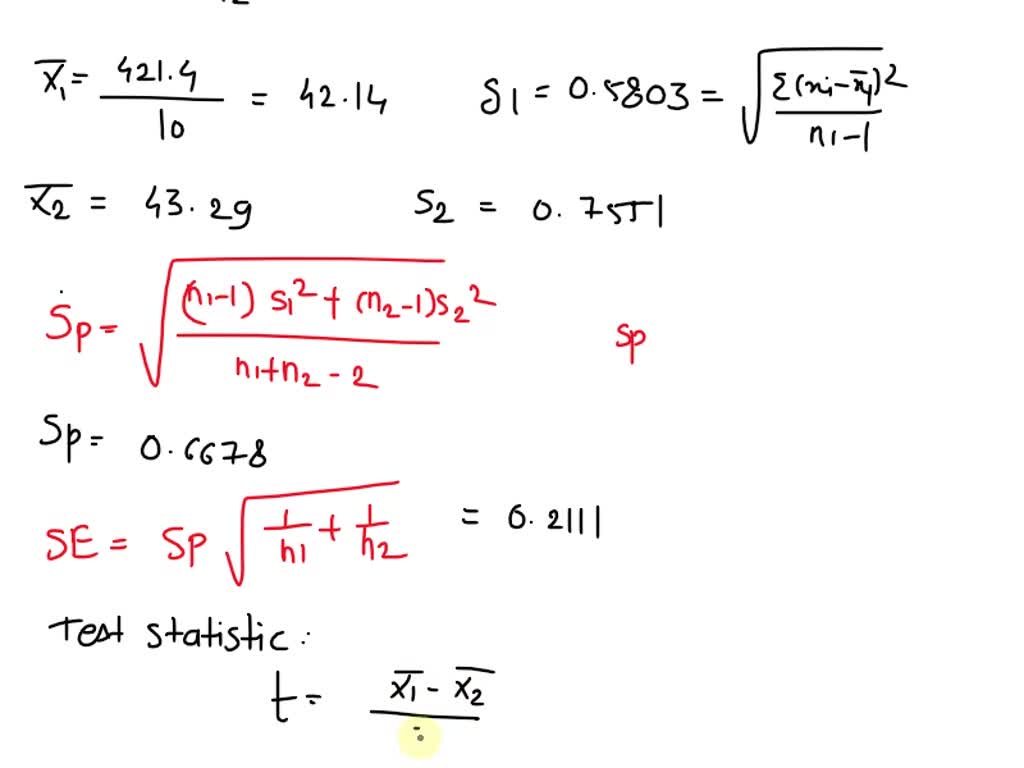 x̄₁ = 421.4 / 10 = 42.14    S1 = 0.5803 = √(Σ(xi - x̄₁)² / (n1 - 1))
x̄₂ = 43.29    S2 = 0.7551
Sp = √(((n1-1) s1² + (n2-1)s2²) / (n1+n2-2))    Sp
Sp = 0.6678
SE = Sp √(1/n1 + 1/n2) = 0.2111
Test statistic :
t = x̄₁ - x̄₂